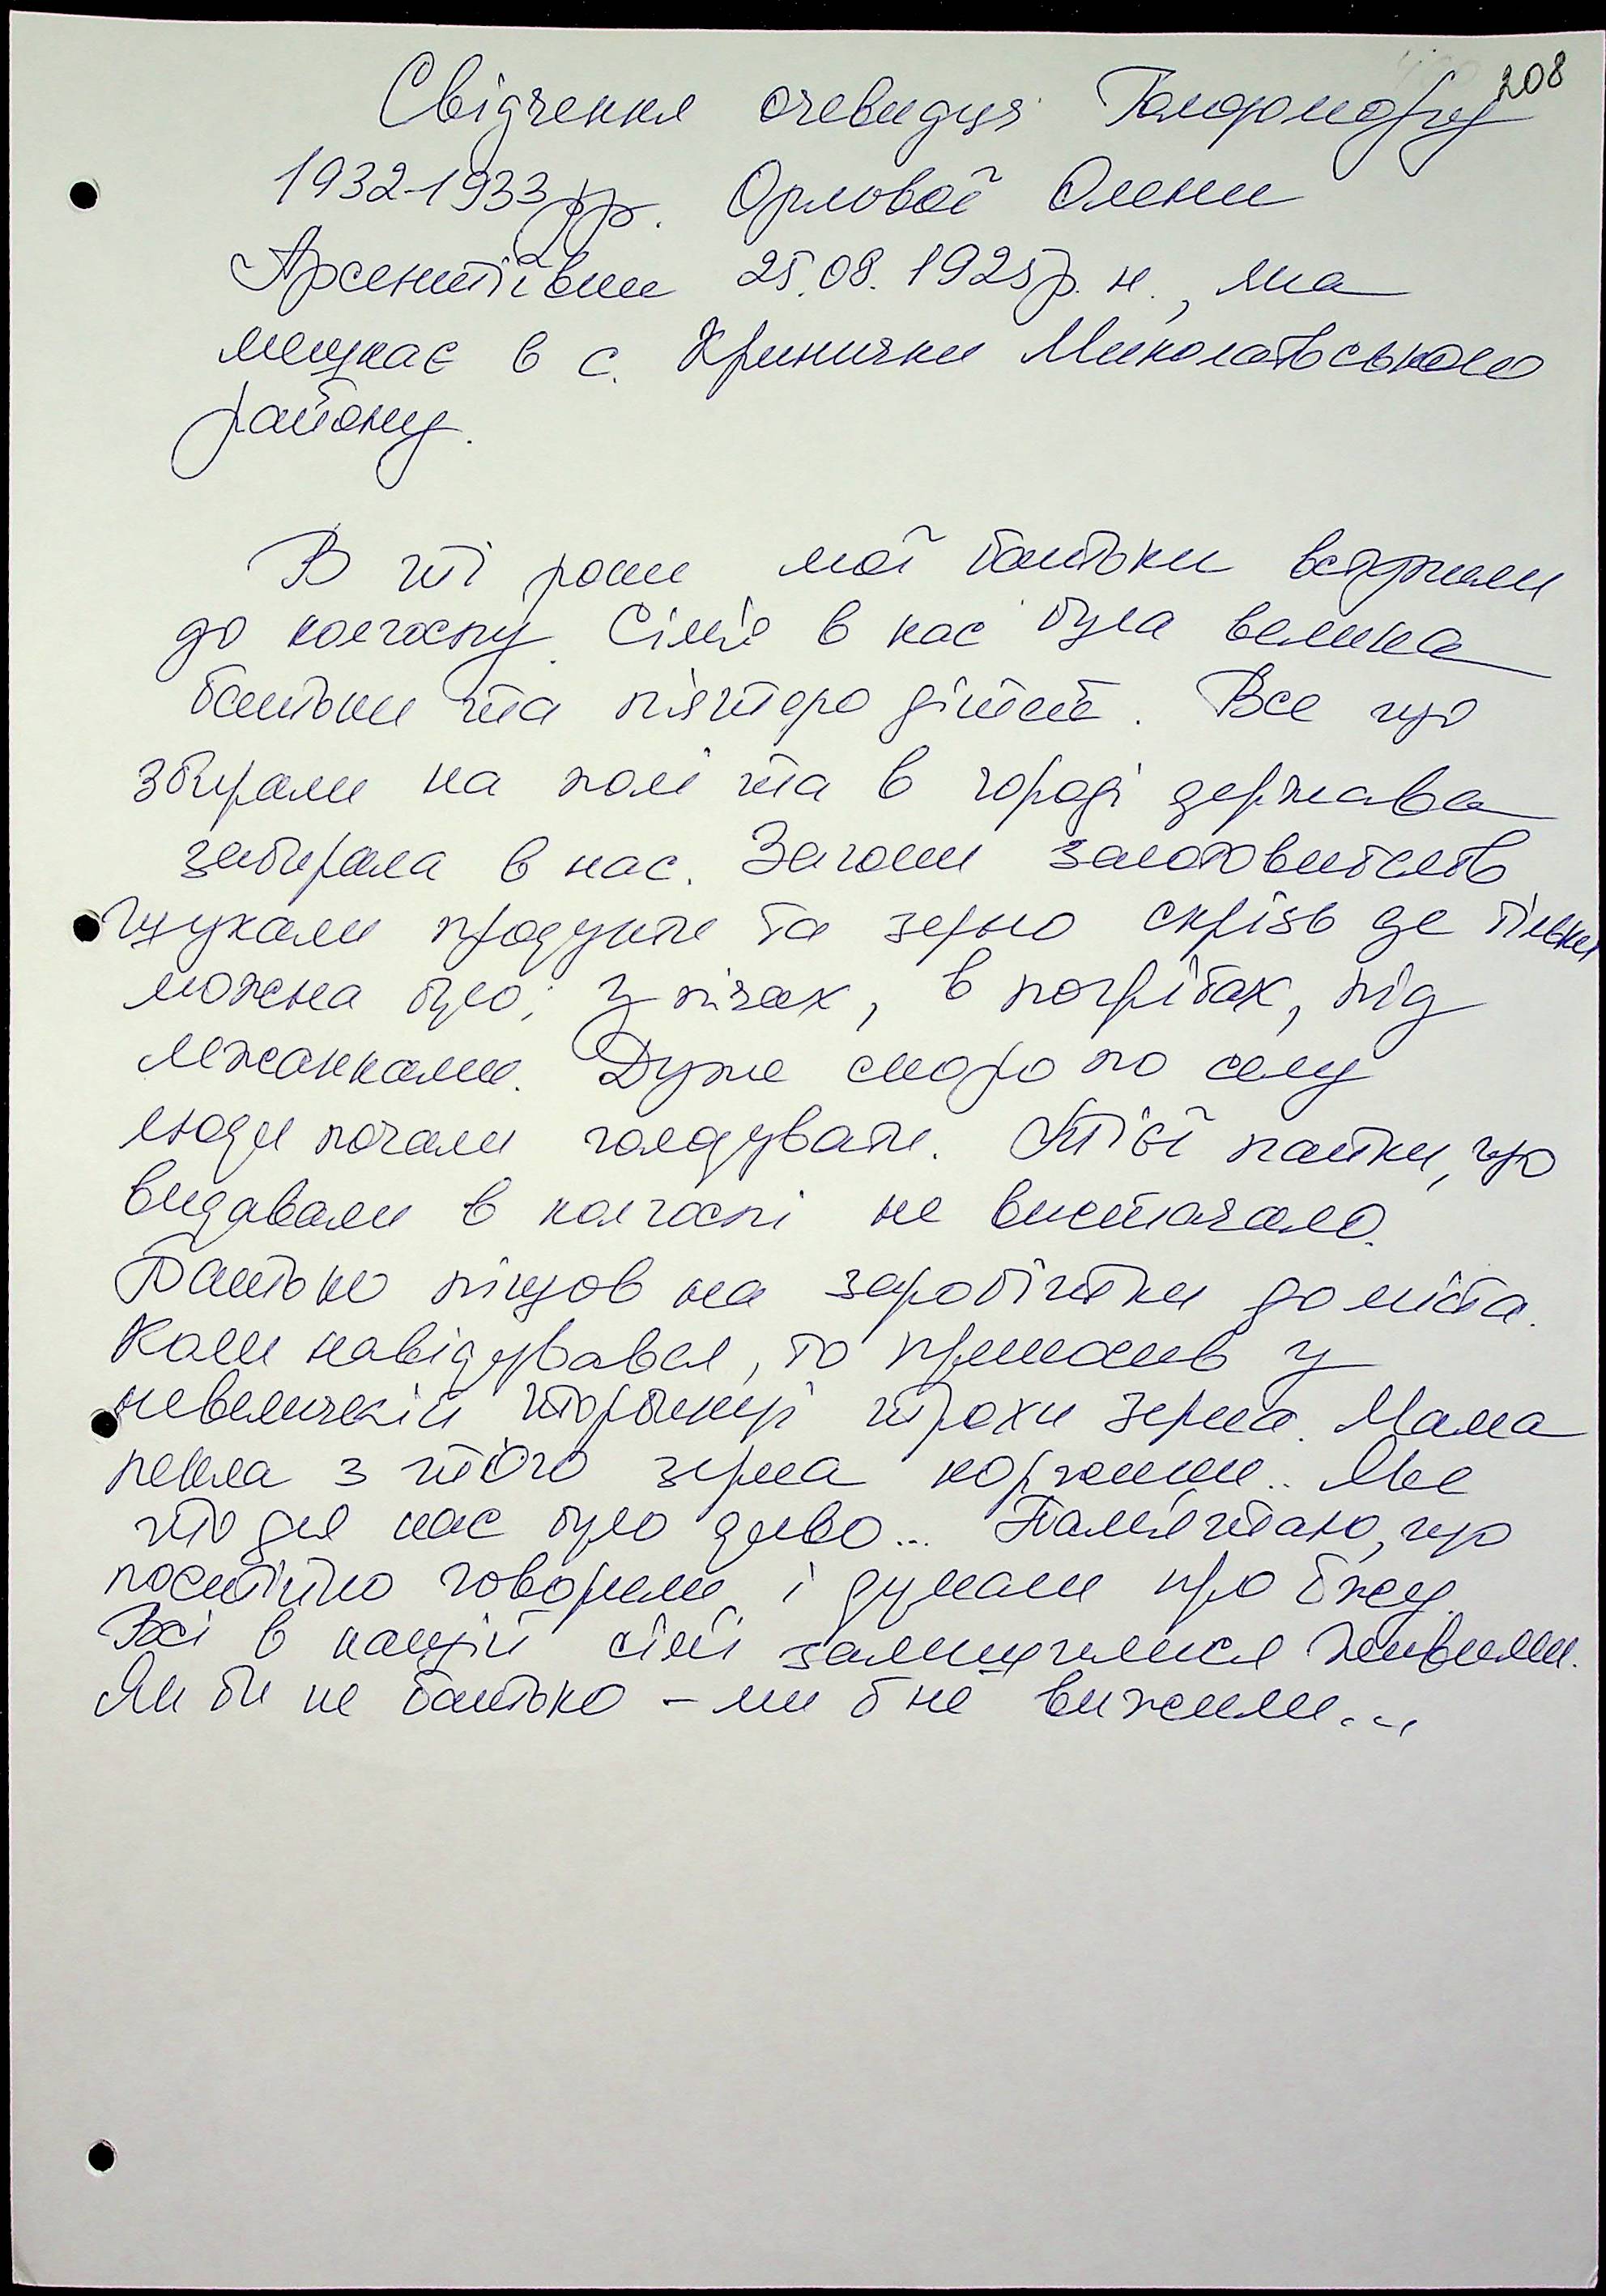 208
Свідчення очевидця Голодомору
1932-1933 рр. Орлової Олени
Арсентіївни 25.08.1925 р. н., яка
мешкає в с. Кринички Миколаївського
району.
В ті роки мої батьки вступили
до колгоспу. Сім'я в нас була велика
батьки та п'ятеро дітей. Все що
збирали на полі та в городі держава
забирала в нас. Загони заготовителів
шукали продукти та зерно скрізь де тільки
можна було; у пічах, в погрібах, під
лежанками. Дуже скоро по селу
люди почали голодувати. Тієї пайки, що
видавали в колгоспі не вистачало.
Батько пішов на заробітки до міста.
Коли навідувався, то приносив у
невеличкій торбинці трохи зерна. Мама
пекла з того зерна коржики.. Яке
то для нас було диво... Пам'ятаю, що
постійно говорили і думали про їжу.
Всі в нашій сім'ї залишилися живими.
Як би не батько – ми б не вижили...